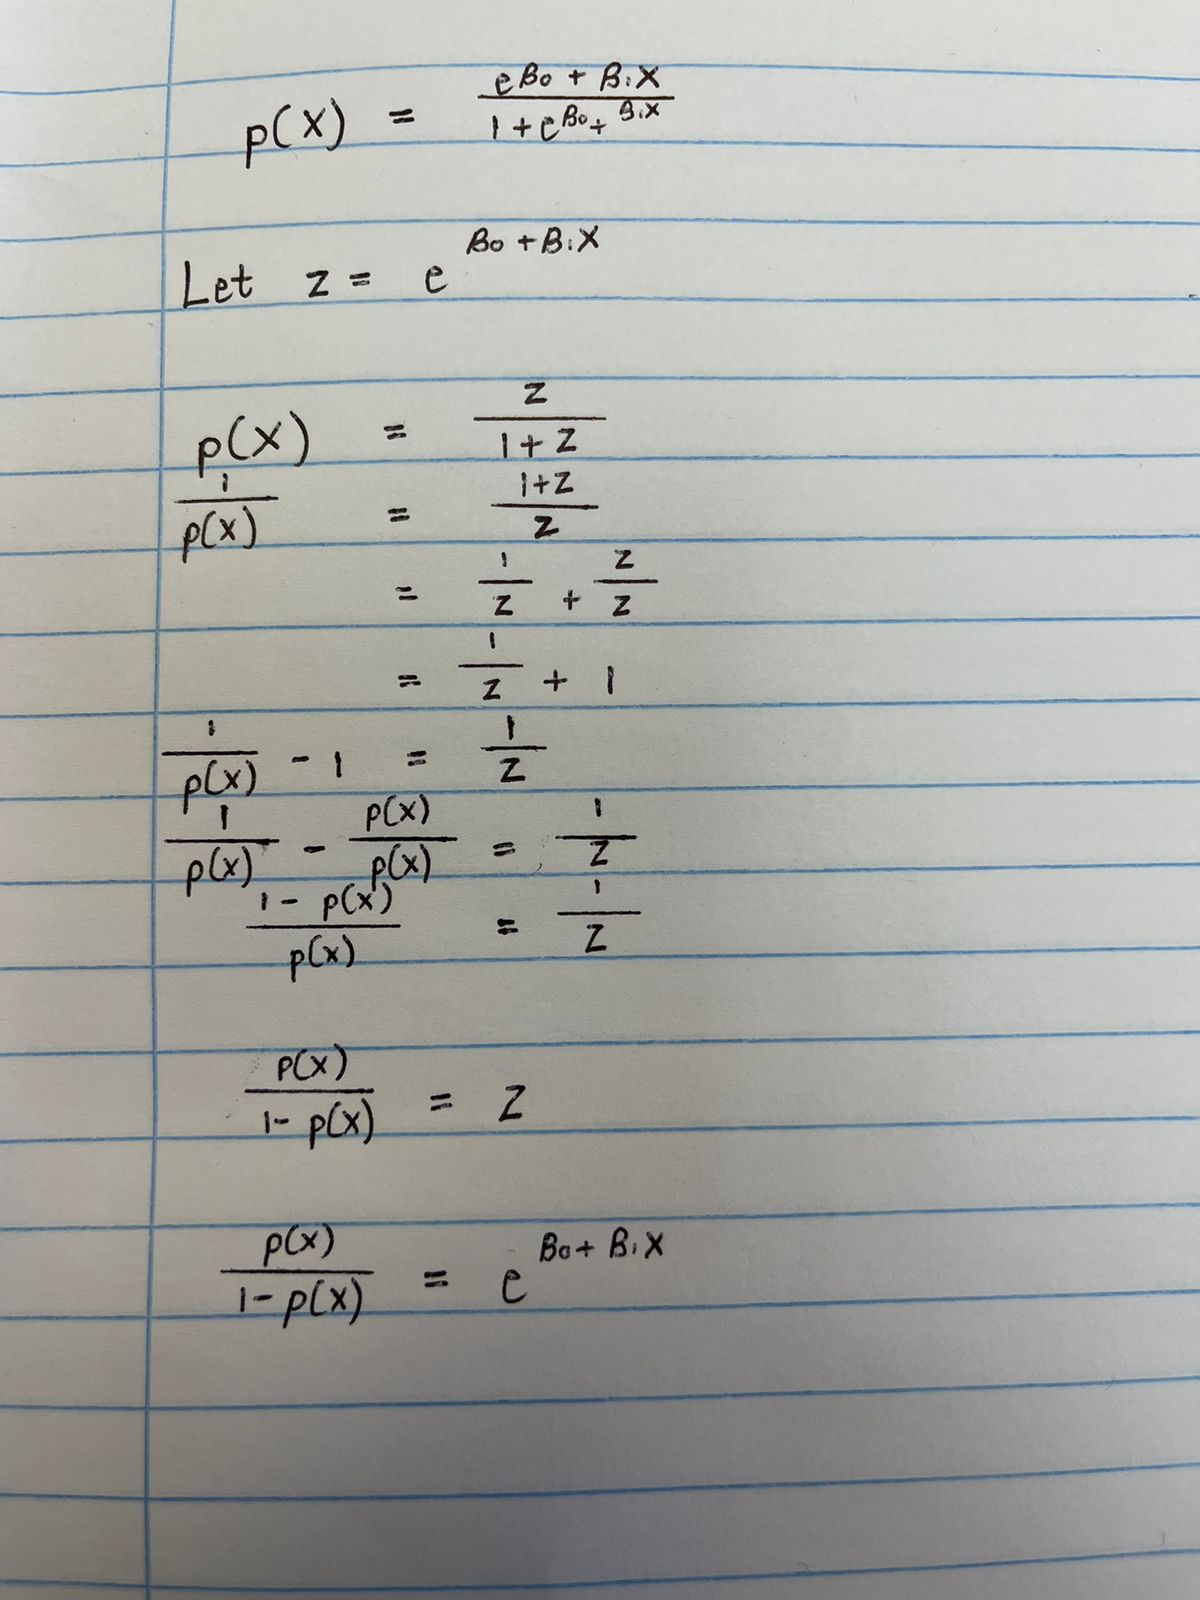 p(X) = e^{β₀ + β₁X} / (1 + e^{β₀ + β₁X})
Let z = e^{β₀ + β₁X}
p(X) = z / (1 + z)
1 / p(X) = (1 + z) / z
= 1/z + z/z
= 1/z + 1
1 / p(X) - 1 = 1/z
1 / p(X) - p(X) / p(X) = 1/z
(1 - p(X)) / p(X) = 1/z
p(X) / (1 - p(X)) = z
p(X) / (1 - p(X)) = e^{β₀ + β₁X}